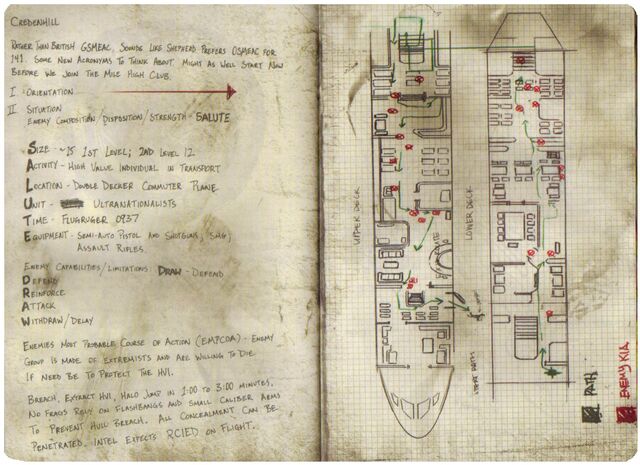 CREDENHILL
RATHER THAN BRITISH GSMEAC, SOUNDS LIKE SHEPHERD PREFERS OSMEAC FOR
141. SOME NEW ACRONYMS TO THINK ABOUT MIGHT AS WELL START NOW
BEFORE WE JOIN THE MILE HIGH CLUB.
I. ORIENTATION
II SITUATION
ENEMY COMPOSITION/DISPOSITION/STRENGTH - SALUTE
SIZE - ~15 1ST LEVEL; 2ND LEVEL 12
ACTIVITY - HIGH VALUE INDIVIDUAL IN TRANSPORT
LOCATION - DOUBLE DECKER COMMUTER PLANE
UNIT - ULTRANATIONALISTS
TIME - FLUGRUGER 0937
EQUIPMENT - SEMI-AUTO PISTOL AND SHOTGUNS, SMG,
ASSAULT RIFLES.
ENEMY CAPABILITIES/LIMITATIONS: DRAW - DEFEND
DEFEND
REINFORCE
ATTACK
WITHDRAW/DELAY
ENEMIES MOST PROBABLE COURSE OF ACTION (EMPCOA) - ENEMY
GROUP IS MADE OF EXTREMISTS AND ARE WILLING TO DIE
IF NEED BE TO PROTECT THE HVI.
BREACH, EXTRACT HVI, HALO JUMP IN 1:00 TO 3:00 MINUTES.
NO FRAGS RELY ON FLASHBANGS AND SMALL CALIBER ARMS
TO PREVENT HULL BREACH. ALL CONCEALMENT CAN BE
PENETRATED. INTEL EXPECTS RCIED ON FLIGHT.
UPPER DECK
LOWER DECK
PATH
ENEMY KIA